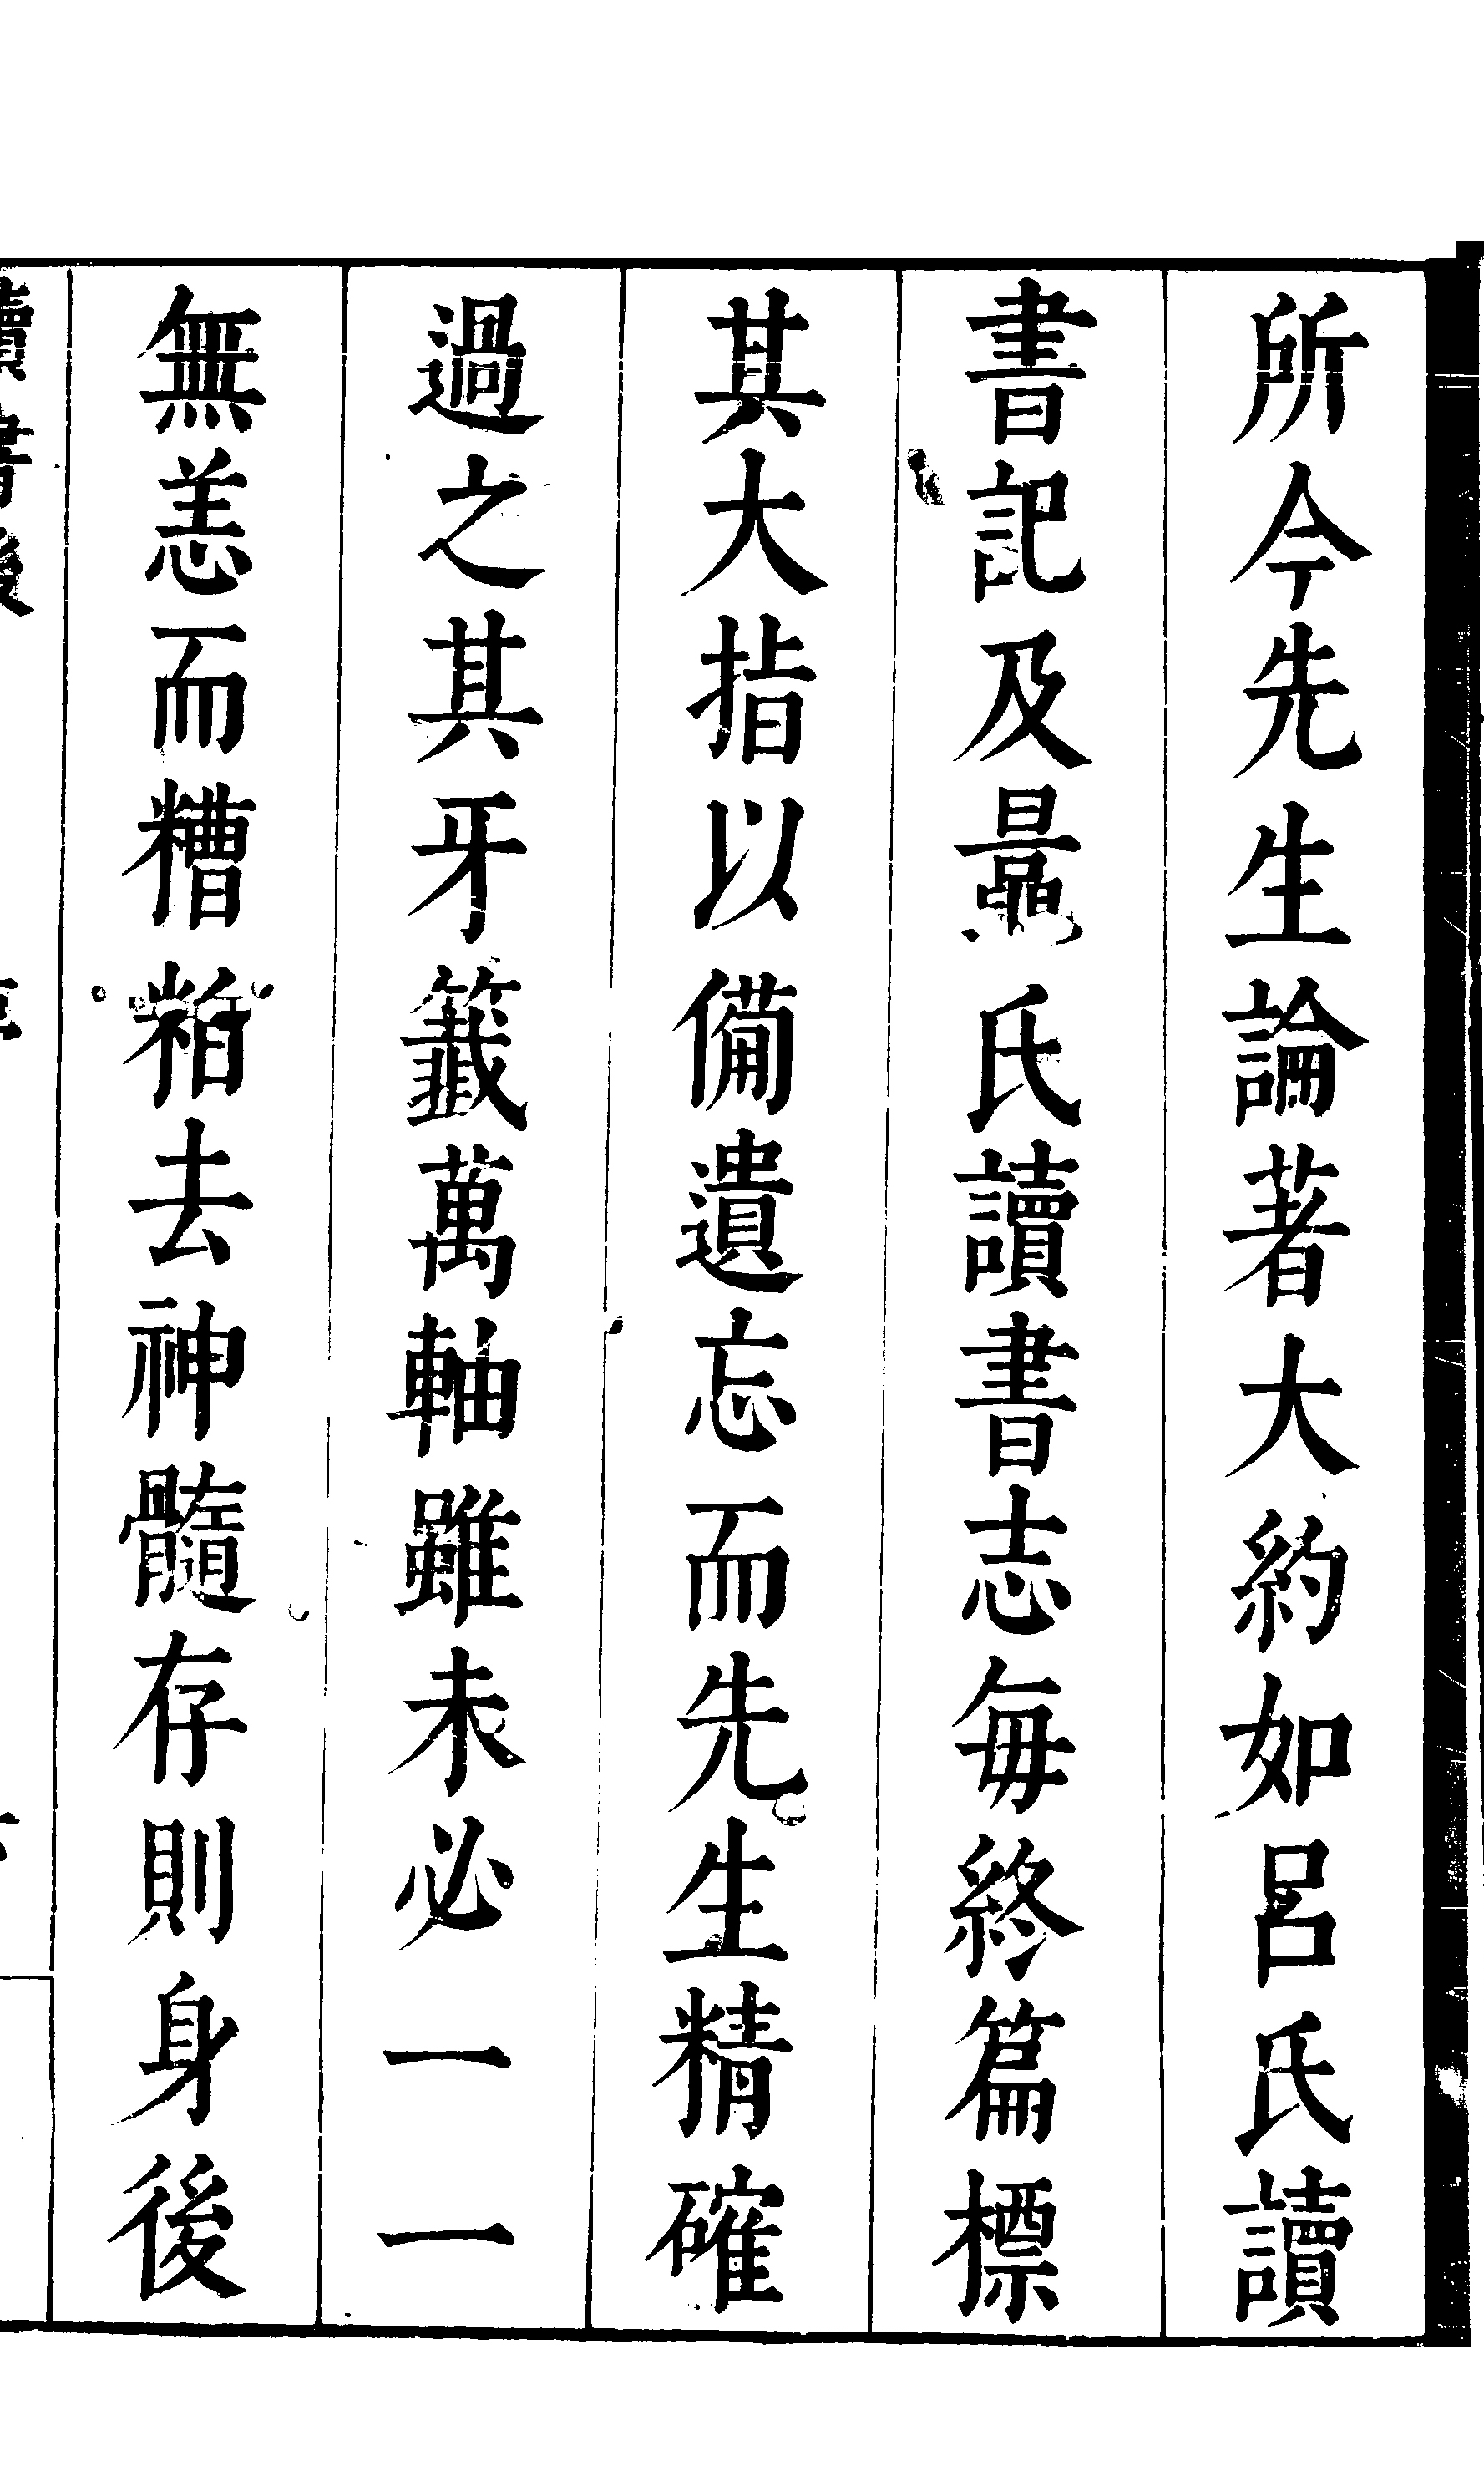 所今先生論著大約如呂氏讀
書記及鼂氏讀書志每終篇標
其大指以備遺忘而先生精確
過之其牙籤萬軸雖未必一一
無恙而糟粕去神髓存則身後
讀書後